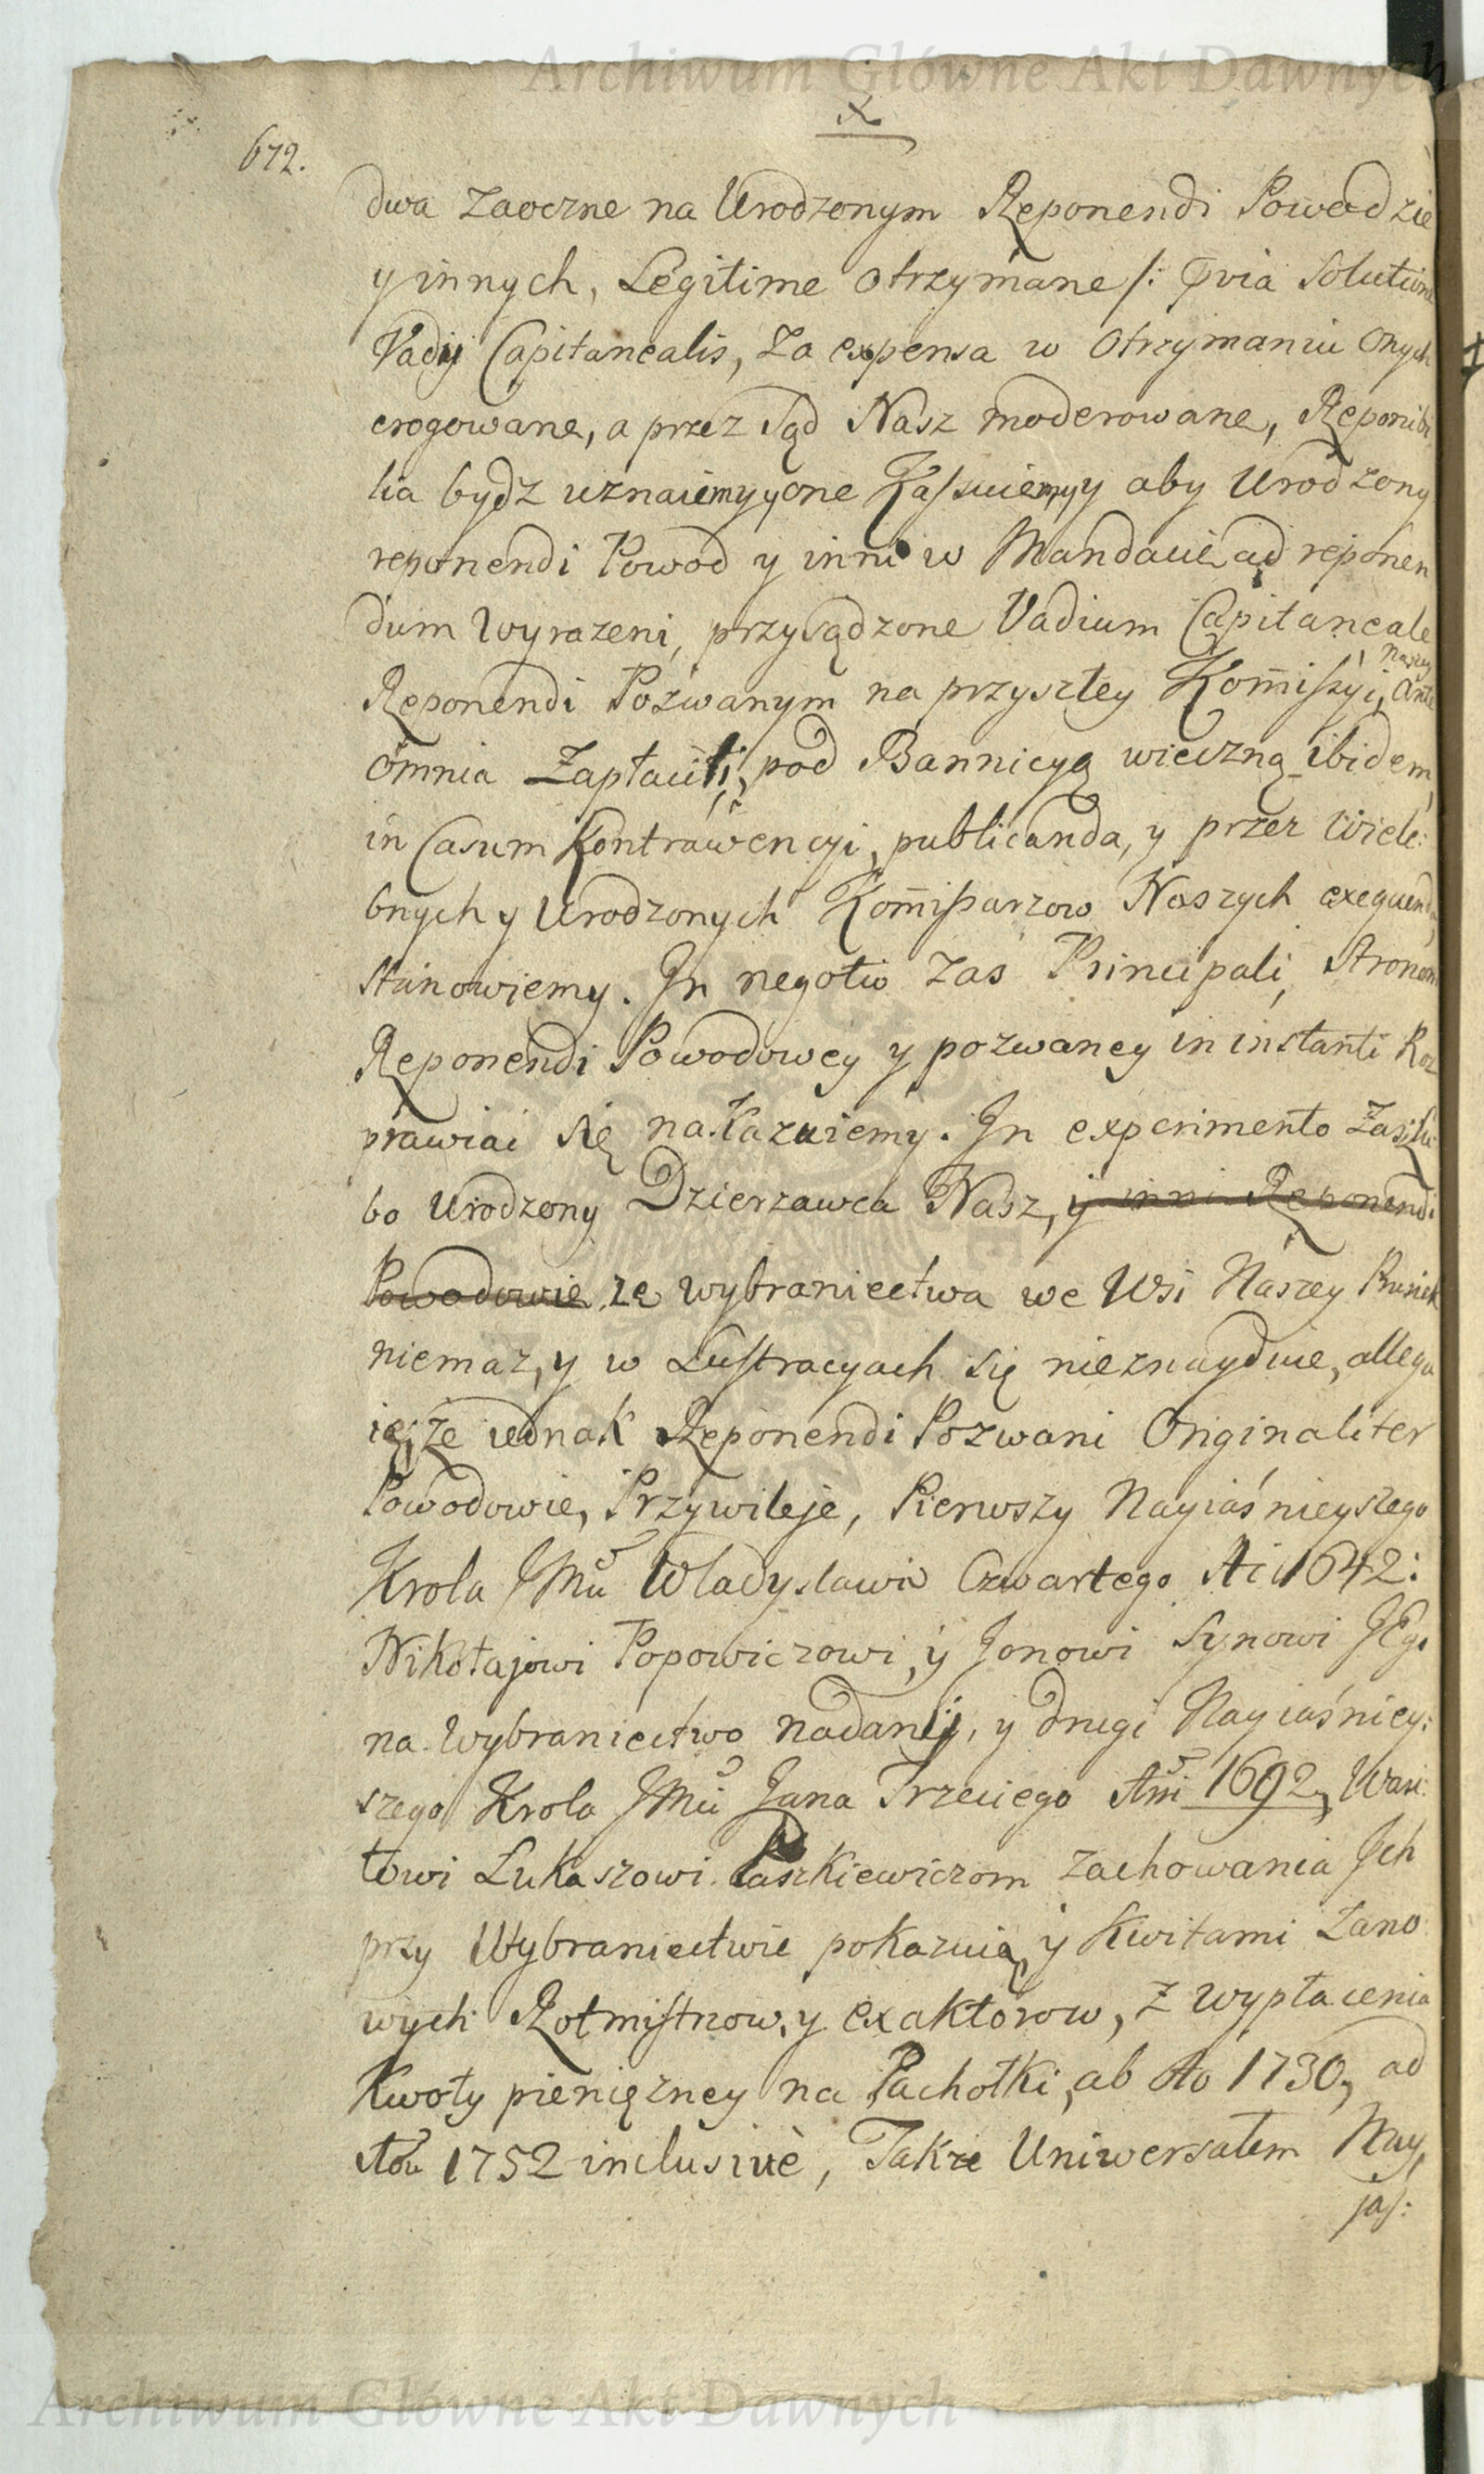 Archiwum Główne Akt Dawnych
x
672.
dwa zaoczne na Urodzonym Reponendi Powodzie
y innych, Legitime otrzymane /: Qvia Solutione
Vadij Capitanealis, za expensa w otrzymaniu onych
erogowane, a przez Sąd Nasz moderowane, Reponibi
lia bydz uznaiemy y one Kassuiemy y aby Urodzony
reponendi Powod y inni w Mandacie ad reponen
dum wyrazeni, przysądzone Vadium Capitaneale
Reponendi Pozwanym na przyszłey Kom̃issyi, Naszey Ante
omnia Zapłacili, pod Bannicyą wieczną ibidem,
in Casum Kontrawencyi, publicanda, y przez Wiele:
bnych y Urodzonych Kom̃issarzow Naszych exequenda,
Stanowiemy. In negotio zas Principali, Stronom
Reponendi Powodowey y pozwaney in instanti Roz
prawiai się nakazuiemy. In experimento Zaszłu
bo Urodzony Dzierzawca Nasz, y inni Reponendi
Powodowie ze wybraniectwa we Wsi Naszey Prusiek
niemaz, y w Lustracyach się nieznayduie, allegu
ią, że iednak Reponendi Pozwani Originaliter
Powodowie, Przywileje, Pierwszy Nayiaśnieyszego
Krola JMci Wladysławа Czwartego Ai 1642:
Nikołajowi Popowiczowi, y Jonowi Synowi JEgo
na Wybraniectwo nadany, y drugi Nayiaśniey:
szego Krola JMci Jana Trzeciego Ani 1692, Wasi:
lowi Lukaszowi Paszkiewiczom zachowania Jch
przy Wybraniectwie pokazuią, y Kwitami Łano
wych Rotmistrzow, y exaktorow, z wypłacenia
Kwoty pienięzney na Pachołki, ab Ao 1730, ad
Aõu 1752 inclusivè, Takze Uniwersałem Nay,
jas:
Archiwum Główne Akt Dawnych